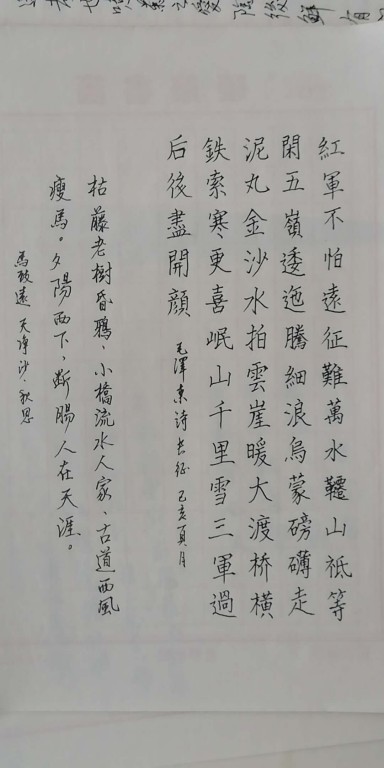 紅軍不怕遠征難萬水韆山祗等
閑五嶺逶迤騰細浪烏蒙磅礴走
泥丸金沙水拍雲崖暖大渡桥橫
鉄索寒更喜岷山千里雪三軍過
后後盡開顔 毛澤東詩長征 己亥夏月
枯藤老樹昏鴉、小橋流水人家、古道西風
瘦馬。夕陽西下、斷腸人在天涯。
馬致遠 天净沙·秋思